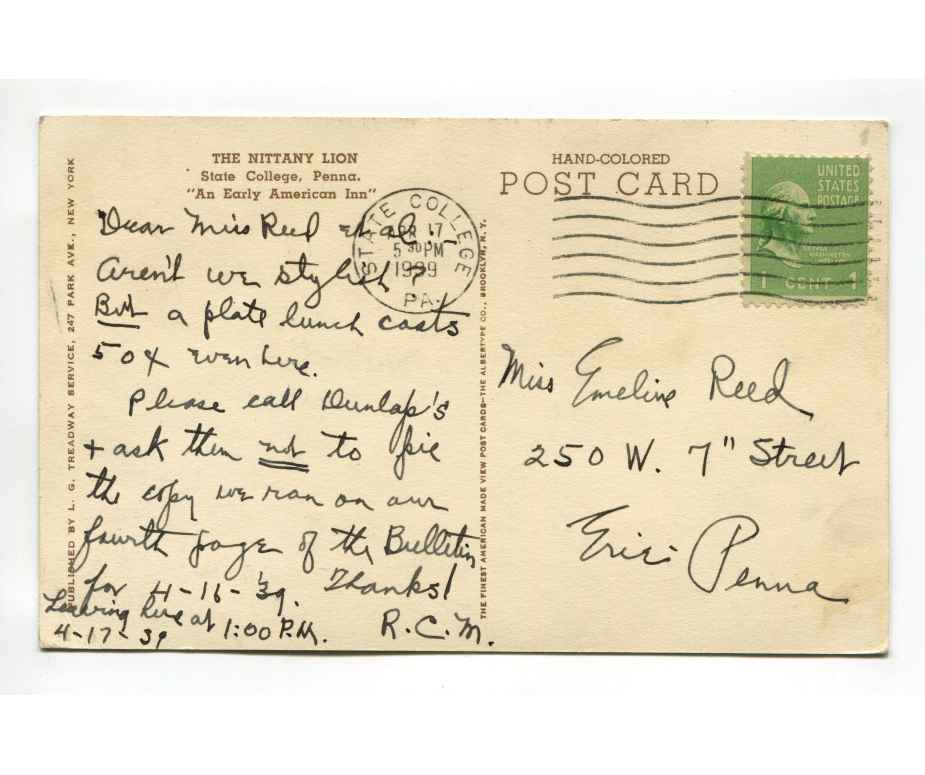 THE NITTANY LION
State College, Penna.
"An Early American Inn"
Dear Miss Reed et al,
Aren't we stylish?
But a plate lunch costs
50¢ even here.
Please call Dunlap's
+ ask them not to pie
the copy we ran on our
fourth page of the Bulletin
for 4-16-39. Thanks!
R.C.M.
Leaving here at 1:00 P.M.
4-17-39
PUBLISHED BY L. G. TREADWAY SERVICE, 247 PARK AVE., NEW YORK
THE FINEST AMERICAN MADE VIEW POST CARDS—THE ALBERTYPE CO., BROOKLYN, N. Y.
HAND-COLORED
POST CARD
STATE COLLEGE
APR 17
5 30 PM
1939
PA.
UNITED
STATES
POSTAGE
WASHINGTON
1 CENT 1
Miss Emeline Reed
250 W. 7" Street
Erie Penna